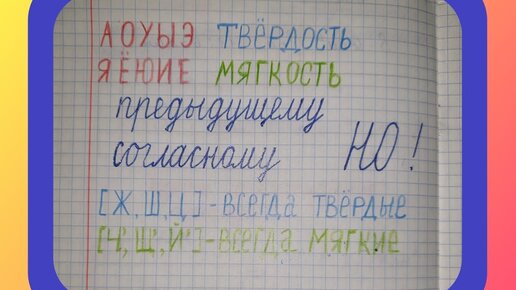 АОУЫЭ ТВЁРДОСТЬ
ЯЁЮИЕ МЯГКОСТЬ
предыдущему
согласному НО!
[Ж, Ш, Ц] - ВСЕГДА ТВЁРДЫЕ
[Ч', Щ', Й'] - ВСЕГДА МЯГКИЕ